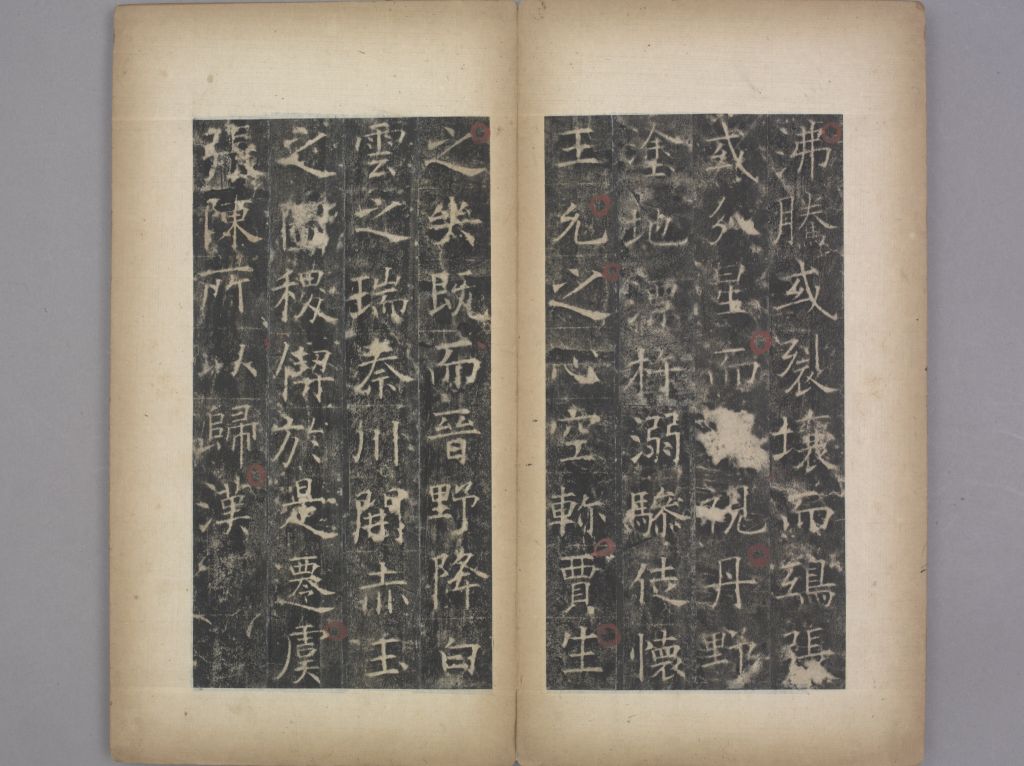 沸騰或裂壤而鴟張
或分星而視丹野
塗地溺驂徒懷
王允之心空軫賈生
之哭既而晉野降白
雲之瑞秦川開赤玉
之圖稷偰於是遷虞
張陳所以歸漢